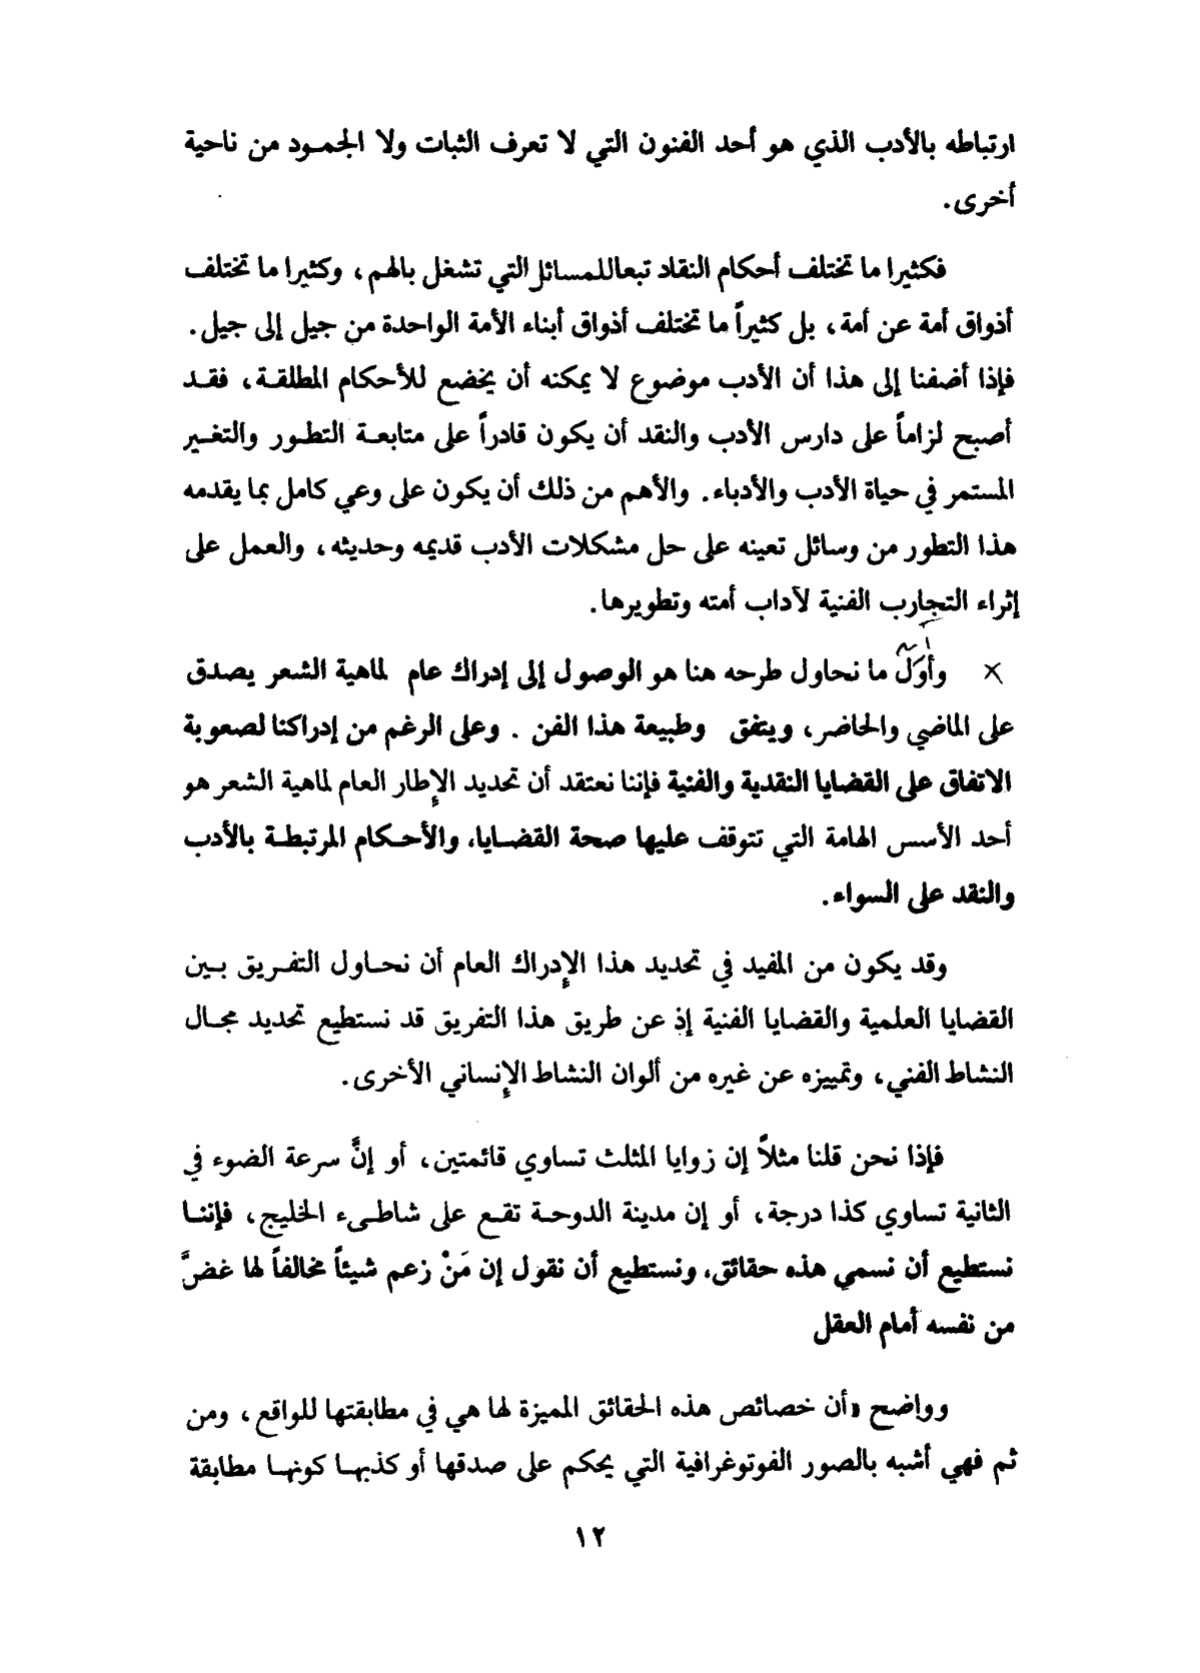 ارتباطه بالأدب الذي هو أحد الفنون التي لا تعرف الثبات ولا الجمود من ناحية
أخرى.
فكثيرا ما تختلف أحكام النقاد تبعاللمسائل التي تشغل بالهم، وكثيرا ما تختلف
أذواق أمة عن أمة، بل كثيراً ما تختلف أذواق أبناء الأمة الواحدة من جيل إلى جيل.
فإذا أضفنا إلى هذا أن الأدب موضوع لا يمكنه أن يخضع للأحكام المطلقة، فقد
أصبح لزاماً على دارس الأدب والنقد أن يكون قادراً على متابعة التطور والتغير
المستمر في حياة الأدب والأدباء. والأهم من ذلك أن يكون على وعي كامل بما يقدمه
هذا التطور من وسائل تعينه على حل مشكلات الأدب قديمه وحديثه، والعمل على
إثراء التجارب الفنية لآداب أمته وتطويرها.
× وأوَلّ ما نحاول طرحه هنا هو الوصول إلى إدراك عام لماهية الشعر يصدق
على الماضي والحاضر، ويتفق وطبيعة هذا الفن . وعلى الرغم من إدراكنا لصعوبة
الاتفاق على القضايا النقدية والفنية فإننا نعتقد أن تحديد الإطار العام لماهية الشعر هو
أحد الأسس الهامة التي تتوقف عليها صحة القضايا، والأحكام المرتبطة بالأدب
والنقد على السواء.
وقد يكون من المفيد في تحديد هذا الإدراك العام أن نحاول التفريق بين
القضايا العلمية والقضايا الفنية إذ عن طريق هذا التفريق قد نستطيع تحديد مجال
النشاط الفني، وتمييزه عن غيره من ألوان النشاط الإنساني الأخرى.
فإذا نحن قلنا مثلاً إن زوايا المثلث تساوي قائمتين، أو إنَّ سرعة الضوء في
الثانية تساوي كذا درجة، أو إن مدينة الدوحة تقع على شاطىء الخليج، فإننا
نستطيع أن نسمي هذه حقائق، ونستطيع أن نقول إن مَنْ زعم شيئاً مخالفاً لها غضَّ
من نفسه أمام العقل
وواضح «أن خصائص هذه الحقائق المميزة لها هي في مطابقتها للواقع، ومن
ثم فهي أشبه بالصور الفوتوغرافية التي يحكم على صدقها أو كذبها كونها مطابقة
١٢